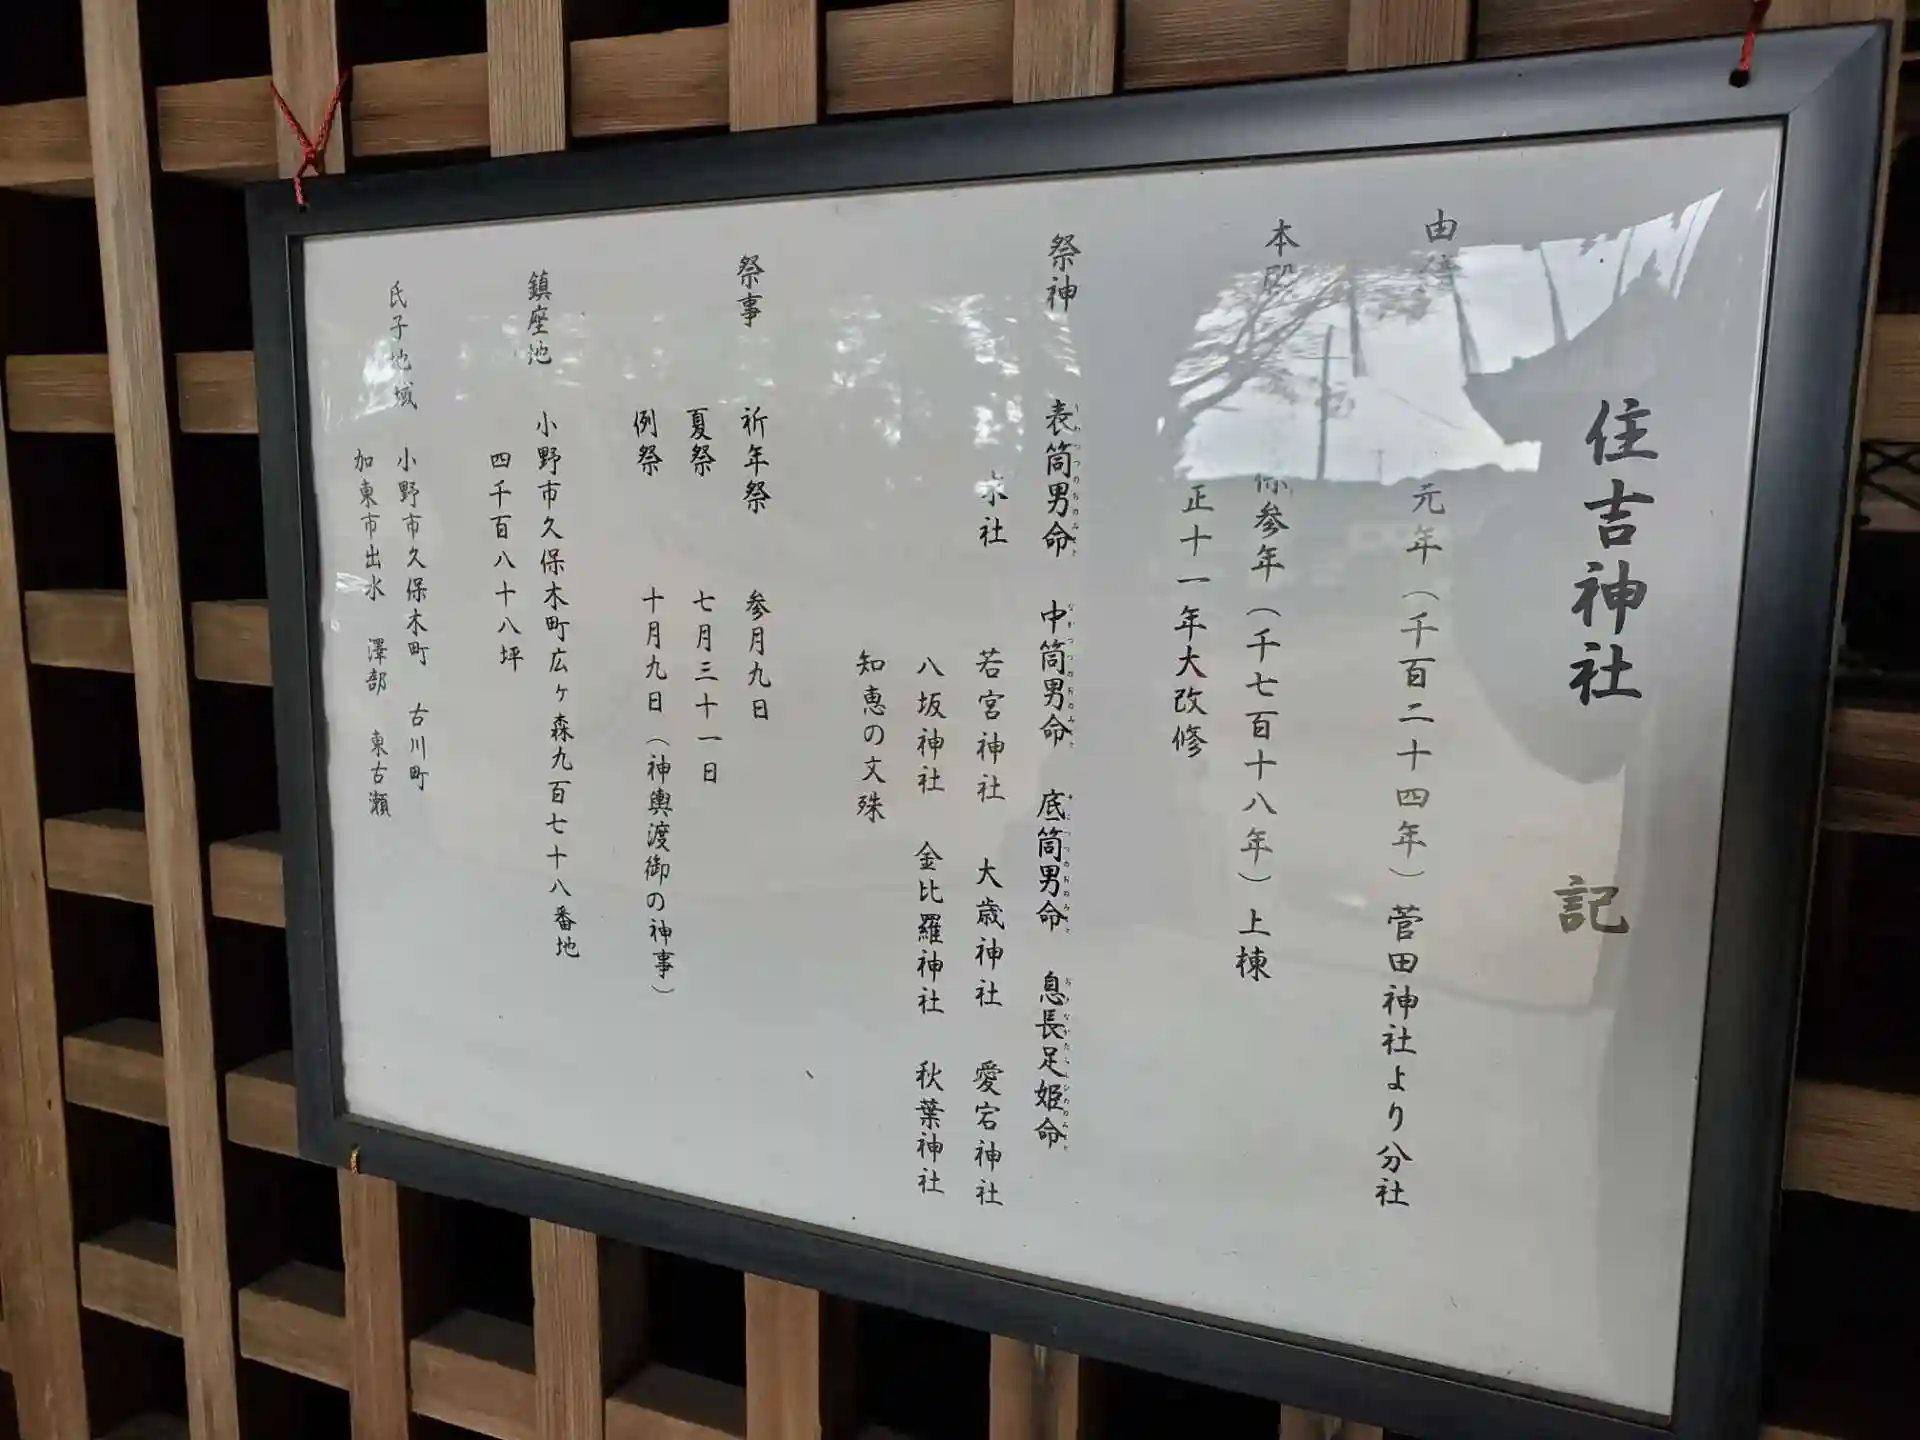 住吉神社　記
由　元年（千百二十四年）菅田神社より分社
本殿　参年（千七百十八年）上棟
正十一年大改修
祭神　表筒男命　中筒男命　底筒男命　息長足姫命
末社　若宮神社　大歳神社　愛宕神社
八坂神社　金比羅神社　秋葉神社
知恵の文殊
祭事　祈年祭　参月九日
夏祭　七月三十一日
例祭　十月九日（神輿渡御の神事）
鎮座地　小野市久保木町広ヶ森九百七十八番地
四千百八十八坪
氏子地域　小野市久保木町　古川町
加東市出水　澤部　東古瀬